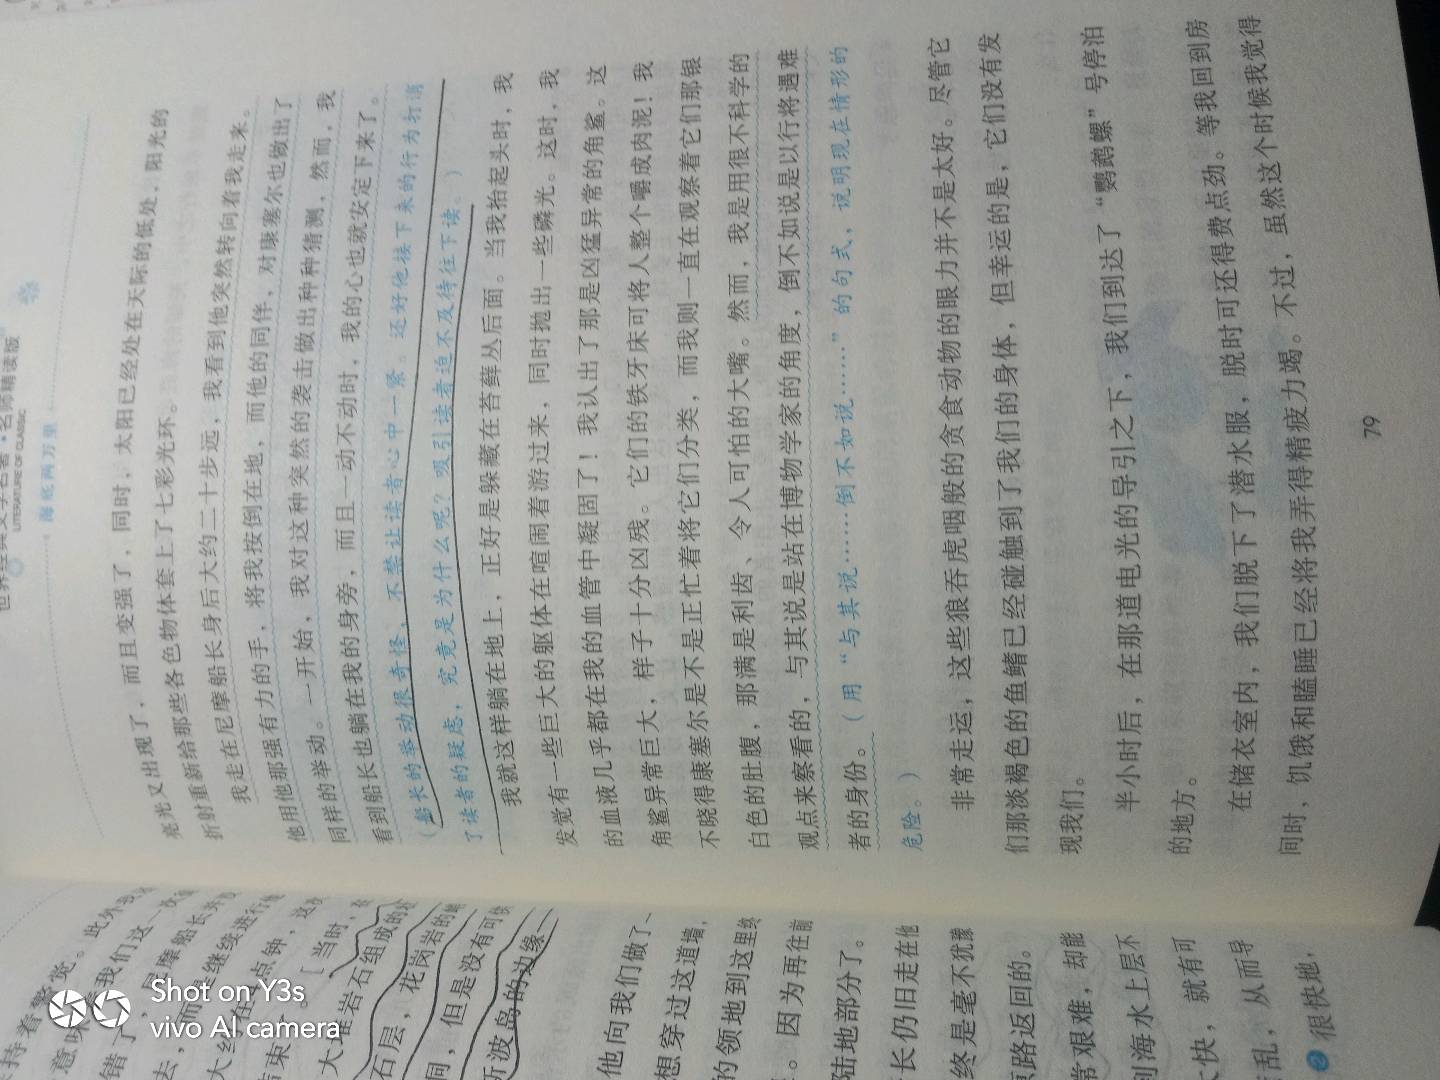 世界经典文学名著·名师精读版
LITERATURE OF CLASSIC
海底两万里
亮光又出现了，而且变强了，同时，太阳已经处在天际的低处，阳光的
折射重新给那些各色物体套上了七彩光环。
我走在尼摩船长身后大约二十步远，我看到他突然转向着我走来。
他用他那强有力的手，将我按倒在地，而他的同伴，对康塞尔也做出了
同样的举动。一开始，我对这种突然的袭击做出种种猜测，然而，我
看到船长也躺在我的身旁，而且一动不动时，我的心也就安定下来了。
（船长的举动很奇怪，不禁让读者心中一紧。还好他接下来的行为打消
了读者的疑虑，究竟是为什么呢？吸引读者迫不及待往下读。）
我就这样躺在地上，正好是躲藏在苔藓丛后面。当我抬起头时，我
发觉有一些巨大的躯体在喧闹着游过来，同时抛出一些磷光。这时，我
的血液几乎都在我的血管中凝固了！我认出了那是凶猛异常的角鲨。这
角鲨异常巨大，样子十分凶残。它们的铁牙床可将人整个嚼成肉泥！我
不晓得康塞尔是不是正忙着将它们分类，而我则一直在观察着它们那银
白色的肚腹，那满是利齿、令人可怕的大嘴。然而，我是用很不科学的
观点来察看的，与其说是站在博物学家的角度，倒不如说是以行将遇难
者的身份。（用“与其说……倒不如说……”的句式，说明现在情形的
危险。）
非常走运，这些狼吞虎咽般的贪食动物的眼力并不是太好。尽管它
们那淡褐色的鱼鳍已经碰触到了我们的身体，但幸运的是，它们没有发
现我们。
半小时后，在那道电光的导引之下，我们到达了“鹦鹉螺”号停泊
的地方。
在储衣室内，我们脱下了潜水服，脱时可还得费点劲。等我回到房
间时，饥饿和瞌睡已经将我弄得精疲力竭。不过，虽然这个时候我觉得
79
持着警觉。此外
我们这一次
摩船长并
继续进行
点钟，这
束了。[当时，
大堆岩石组成的
石层，花岗岩的
同，但是没有可供
斤波岛的边缘
他向我们做了
想穿过这道墙，
的领地到这里终
。因为再往前
陆地部分了。
长仍旧走在他
终是毫不犹豫
原路返回的。
常艰难，却能
到海水上层不
快，就有可
乱，从而导
很快地，
Shot on Y3s
vivo AI camera